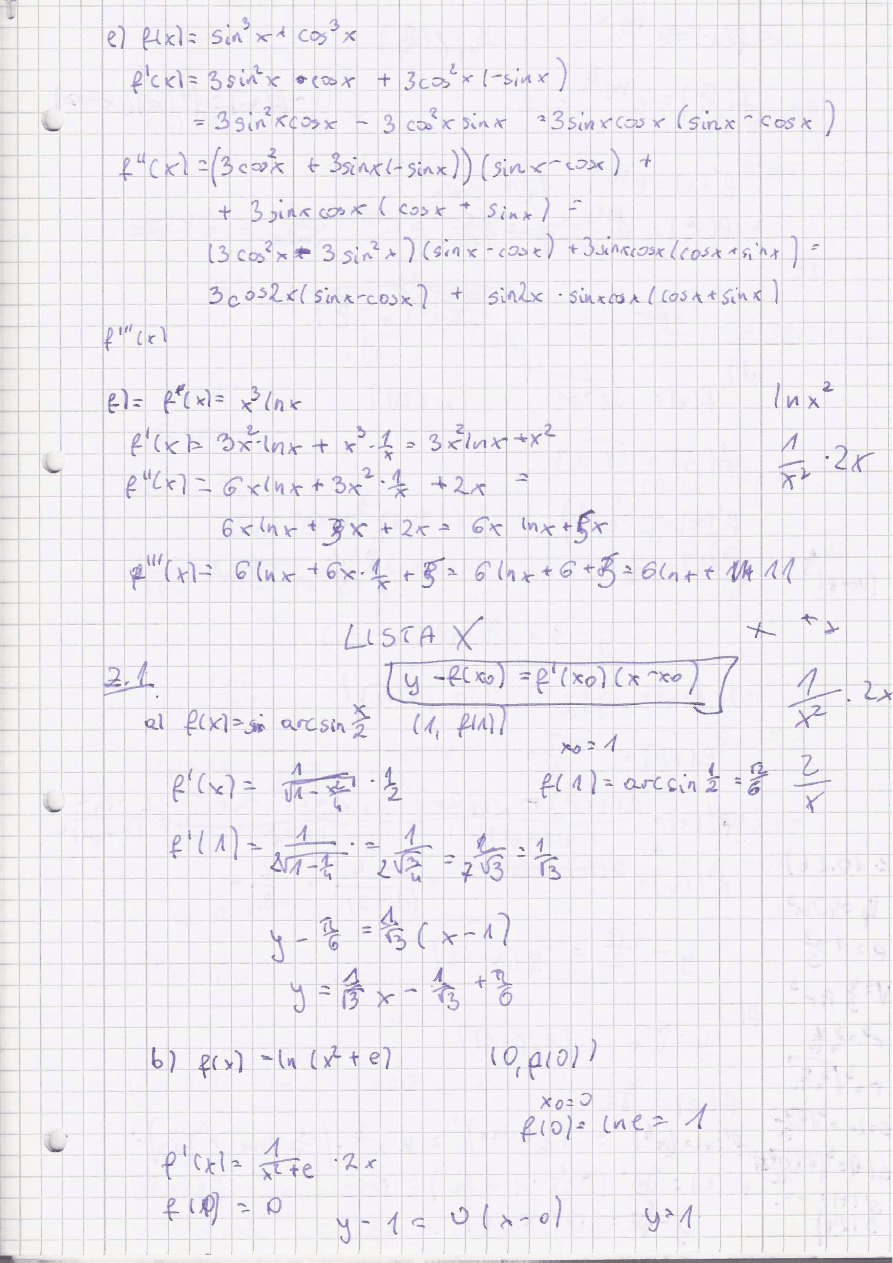 e) f(x) = sin³x + cos³x
f'(x) = 3sin²x · cosx + 3cos²x (-sinx)
= 3sin²x cosx - 3cos²x sinx = 3sinxcosx (sinx - cosx)
f''(x) = (3cos²x + 3sinx(-sinx)) (sinx - cosx) +
+ 3sinxcosx (cosx + sinx) =
(3cos²x - 3sin²x) (sinx - cosx) + 3sinxcosx (cosx + sinx) =
3cos2x (sinx - cosx) + sin2x · sinxcosx (cosx + sinx)
f'''(x)
f) = f(x) = x³ lnx
ln x²
f'(x) = 3x² · lnx + x³ · 1/x = 3x² lnx + x²
1/x² · 2x
f''(x) = 6x lnx + 3x² · 1/x + 2x =
6x lnx + 3x + 2x = 6x lnx + 5x
f'''(x) = 6lnx + 6x · 1/x + 5 = 6lnx + 6 + 5 = 6lnx + 11
LISTA X
Z.1
y - f(x₀) = f'(x₀) (x - x₀)
1/x² · 2x
a) f(x) = arcsin x/2 (1, f(1))
x₀ = 1
f'(x) = 1/√(1 - x²/4) · 1/2 f(1) = arcsin 1/2 = π/6
2/x
f'(1) = 1/(2√(1 - 1/4)) · = 1/(2√(3/4)) = 1/(2√3) = 1/√3
y - π/6 = 1/√3 (x - 1)
y = 1/√3 x - 1/√3 + π/6
b) f(x) = ln (x² + e) (0, f(0))
x₀ = 0
f(0) = lne = 1
f'(x) = 1/(x² + e) · 2x
f(0) = 0
y - 1 = 0 (x - 0) y = 1